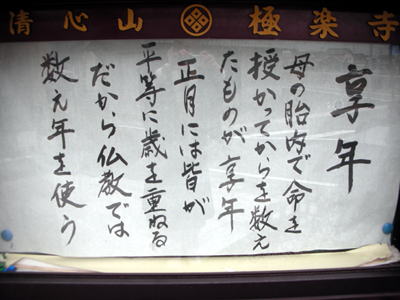 清心山 極楽寺
享年
母の胎内で命を
授かってからを数え
たものが享年
正月には皆が
平等に歳を重ねる
だから仏教では
数え年を使う